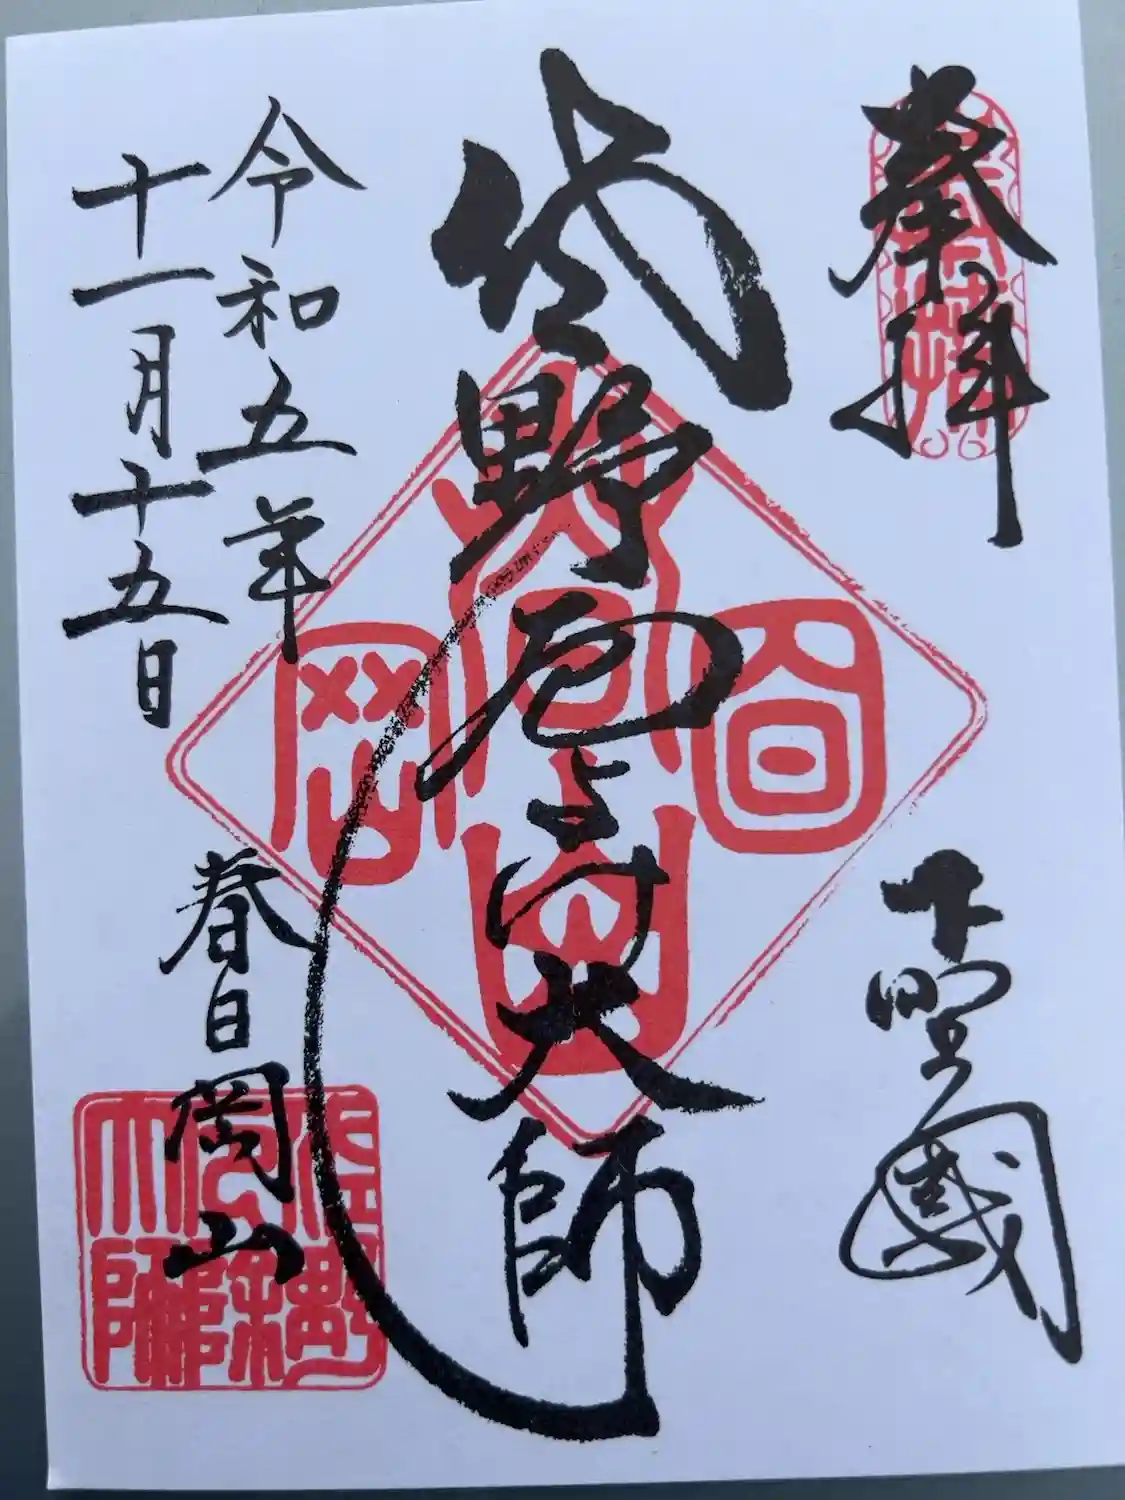 奉拝
下野國
佐野厄よけ大師
令和五年
十一月十五日
春日岡山